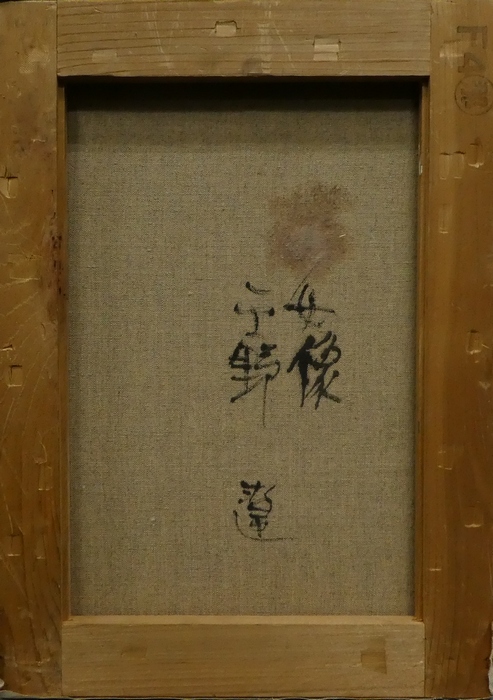 F4
女像
平野 遼